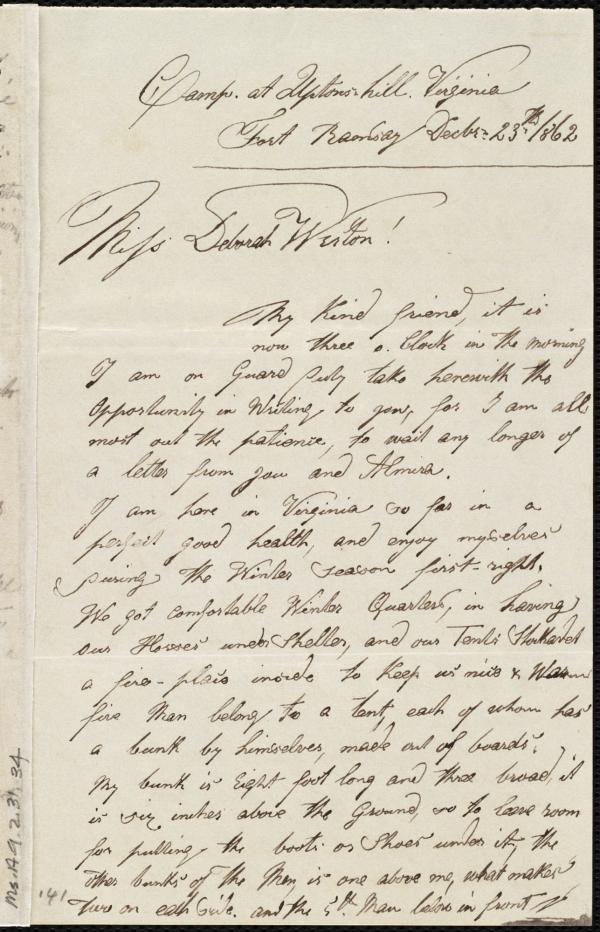 Camp. at Uptons-hill. Virginia
Fort Ramsay Decbr: 23th/1862
Miss Deborah Weston!
My Kind friend, it is
now three o. Clock in the morning
I am on Guard Duty take herewith the
Opportunity in Writing to you, for I am all
most out the patience, to wait any longer of
a letter from you and Almira.
I am here in Virginia so far in a
perfect good health, and enjoy myselves
during the Winter season first-right.
We got comfortable Winter Quarters, in having
our Horses under Shelter, and our Tents Stockadet
a fire-plais inside to Keep us nice & Warm
five Man belong to a tent, each of whom has
a bunk by himselves, made out of boards.
My bunk is Eight foot long and three broad, it
is six inches above the Ground, so to leave room
for putting the boots or Shoes under it, the
other bunks of the Men, is one above me, what makes
two on each Side. and the 5th Man below in front
Ms. A.9.2.31, 34
141